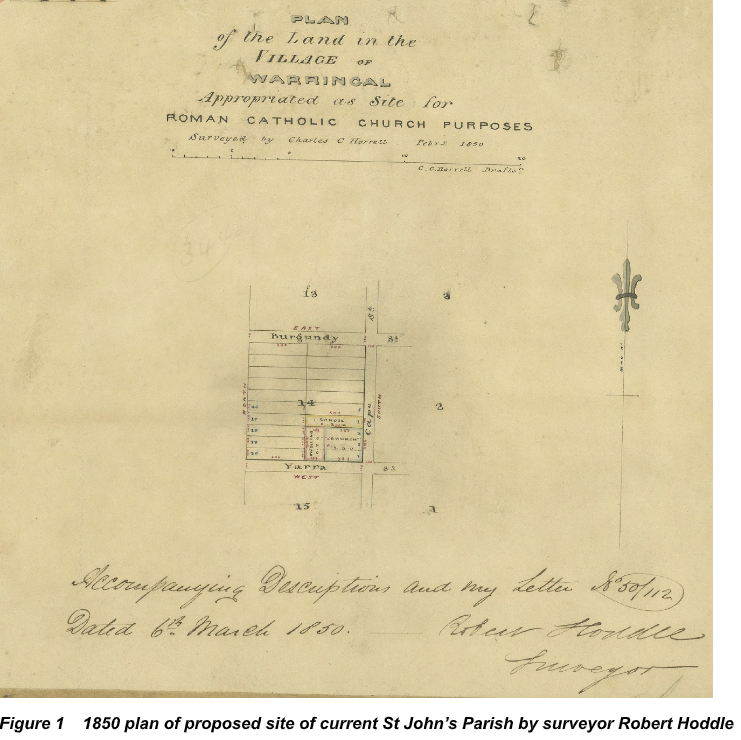 PLAN
of the Land in the
VILLAGE OF
WARRINGAL
Appropriated as Site for
ROMAN CATHOLIC CHURCH PURPOSES
Surveyed by Charles C Horrell Feby 1850
10 20
C. C. Horrell Draftn
13 St 3
EAST
Burgundy St
NORTH
14 2
Cape SOUTH
SCHOOL
CHURCH
Yarra St
WEST
15 1
Accompanying Descriptions and my Letter No 50/112
Dated 6th March 1850.
Robert Hoddle
Surveyor
Figure 1 1850 plan of proposed site of current St John's Parish by surveyor Robert Hoddle